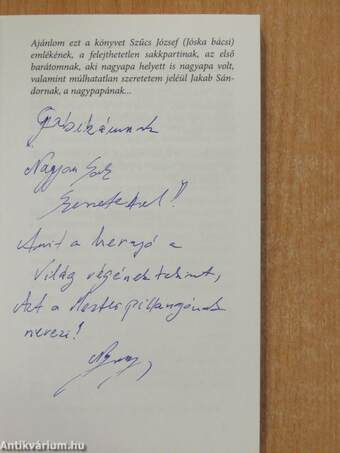 Ajánlom ezt a könyvet Szűcs József (Jóska bácsi)
emlékének, a felejthetetlen sakkpartinak, az első
barátomnak, aki nagyapa helyett is nagyapa volt,
valamint múlhatatlan szeretetem jeléül Jakab Sán-
dornak, a nagypapának...
Gabikámnak
Nagyon sok
Szeretettel!!
Amit a hernyó a
Világ végének tekint,
Azt a Mester pillangónak
nevezi!
Antikvárium.hu